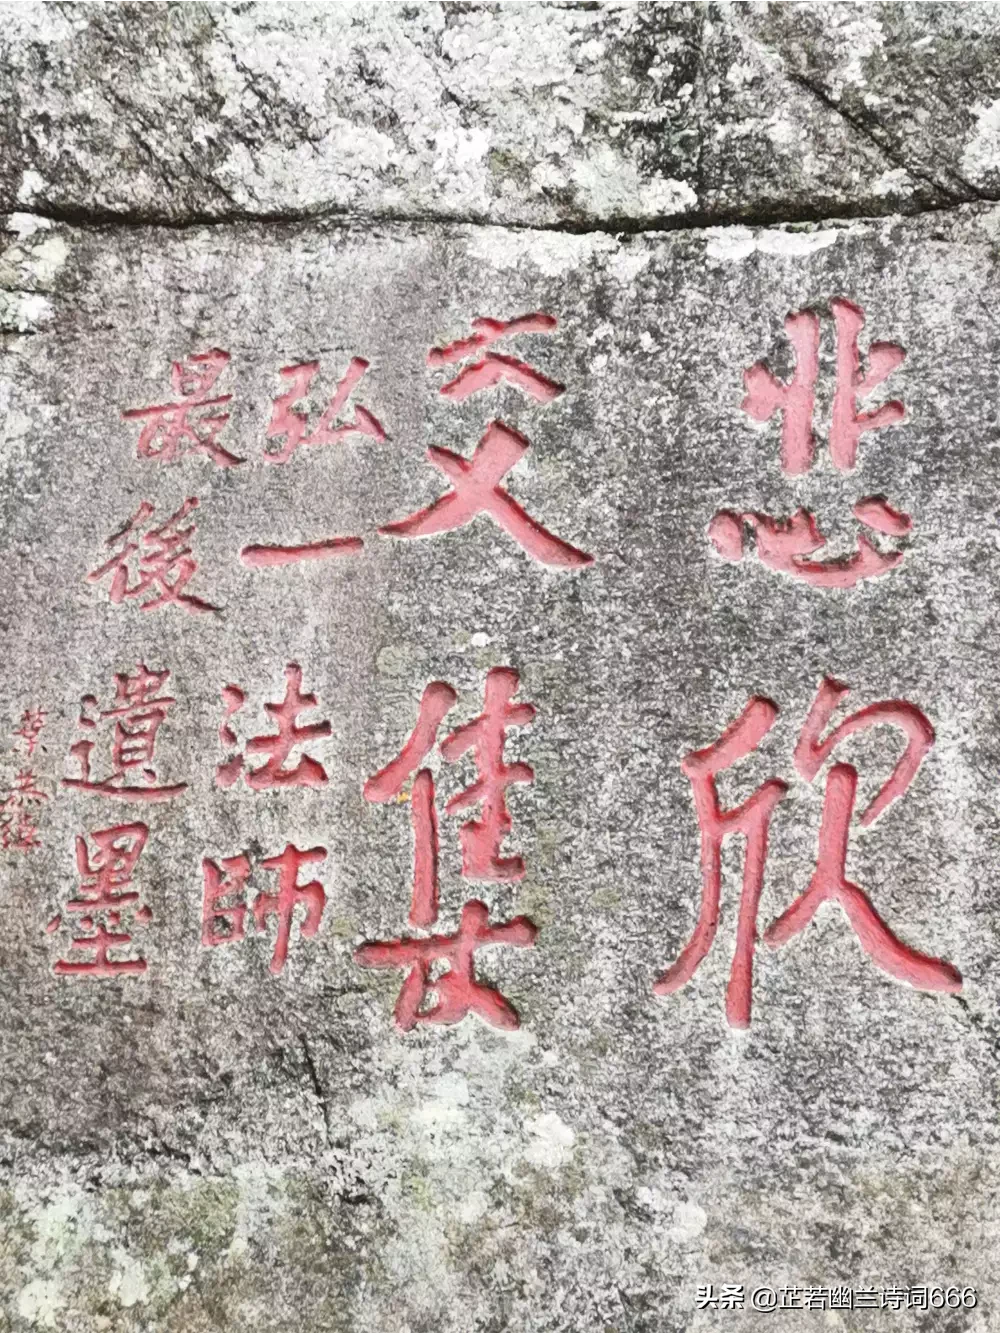 悲欣
交集
弘一法師
最後遺墨
葉恭綽
头条 @芷若幽兰诗词666